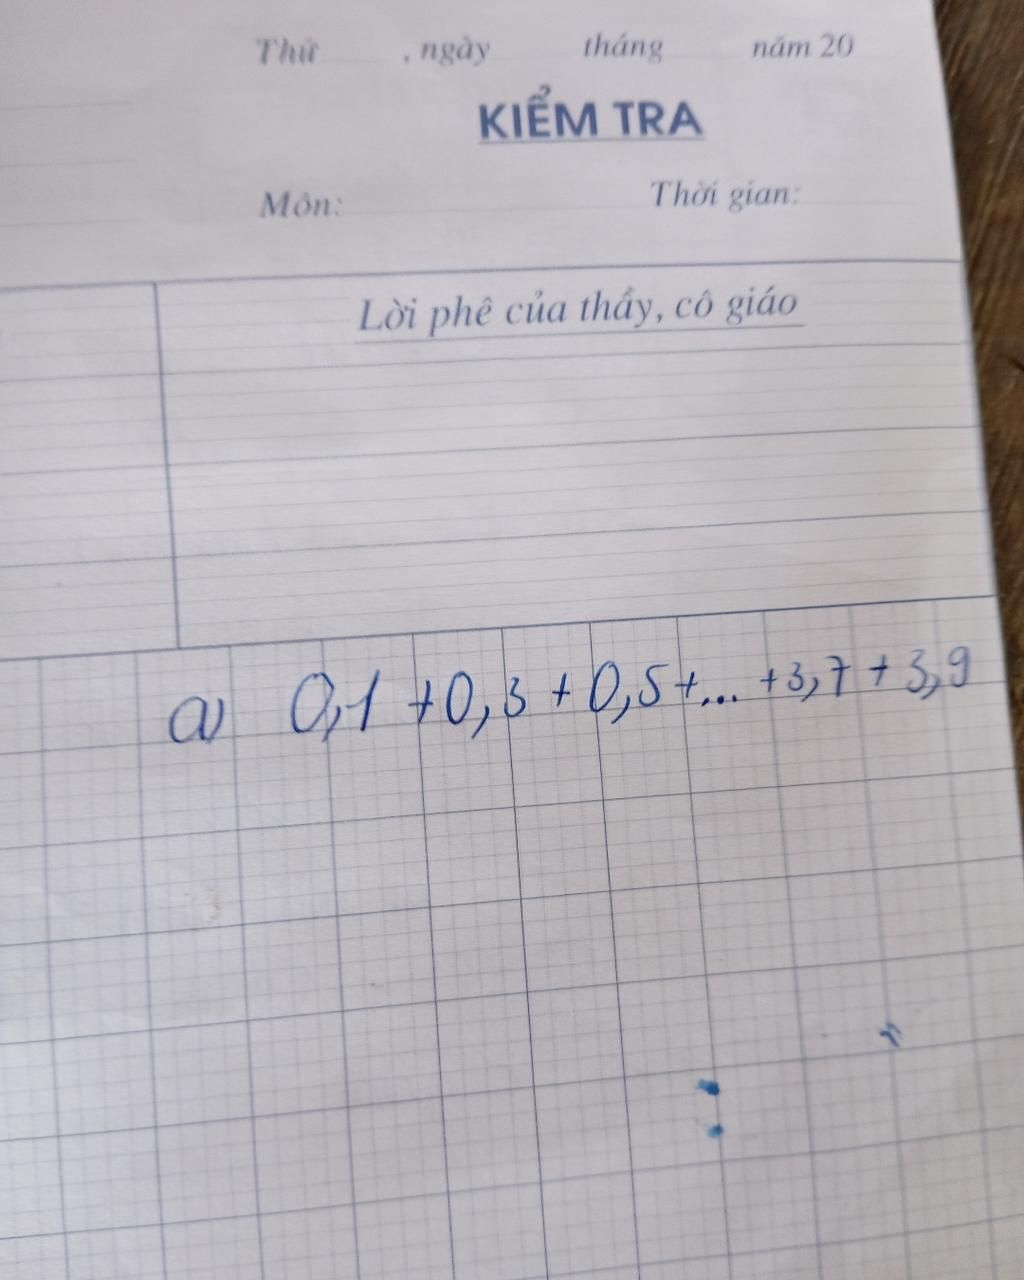 Thứ , ngày tháng năm 20
KIỂM TRA
Môn: Thời gian:
Lời phê của thầy, cô giáo
a) 0,1 + 0,3 + 0,5 + ... + 3,7 + 3,9